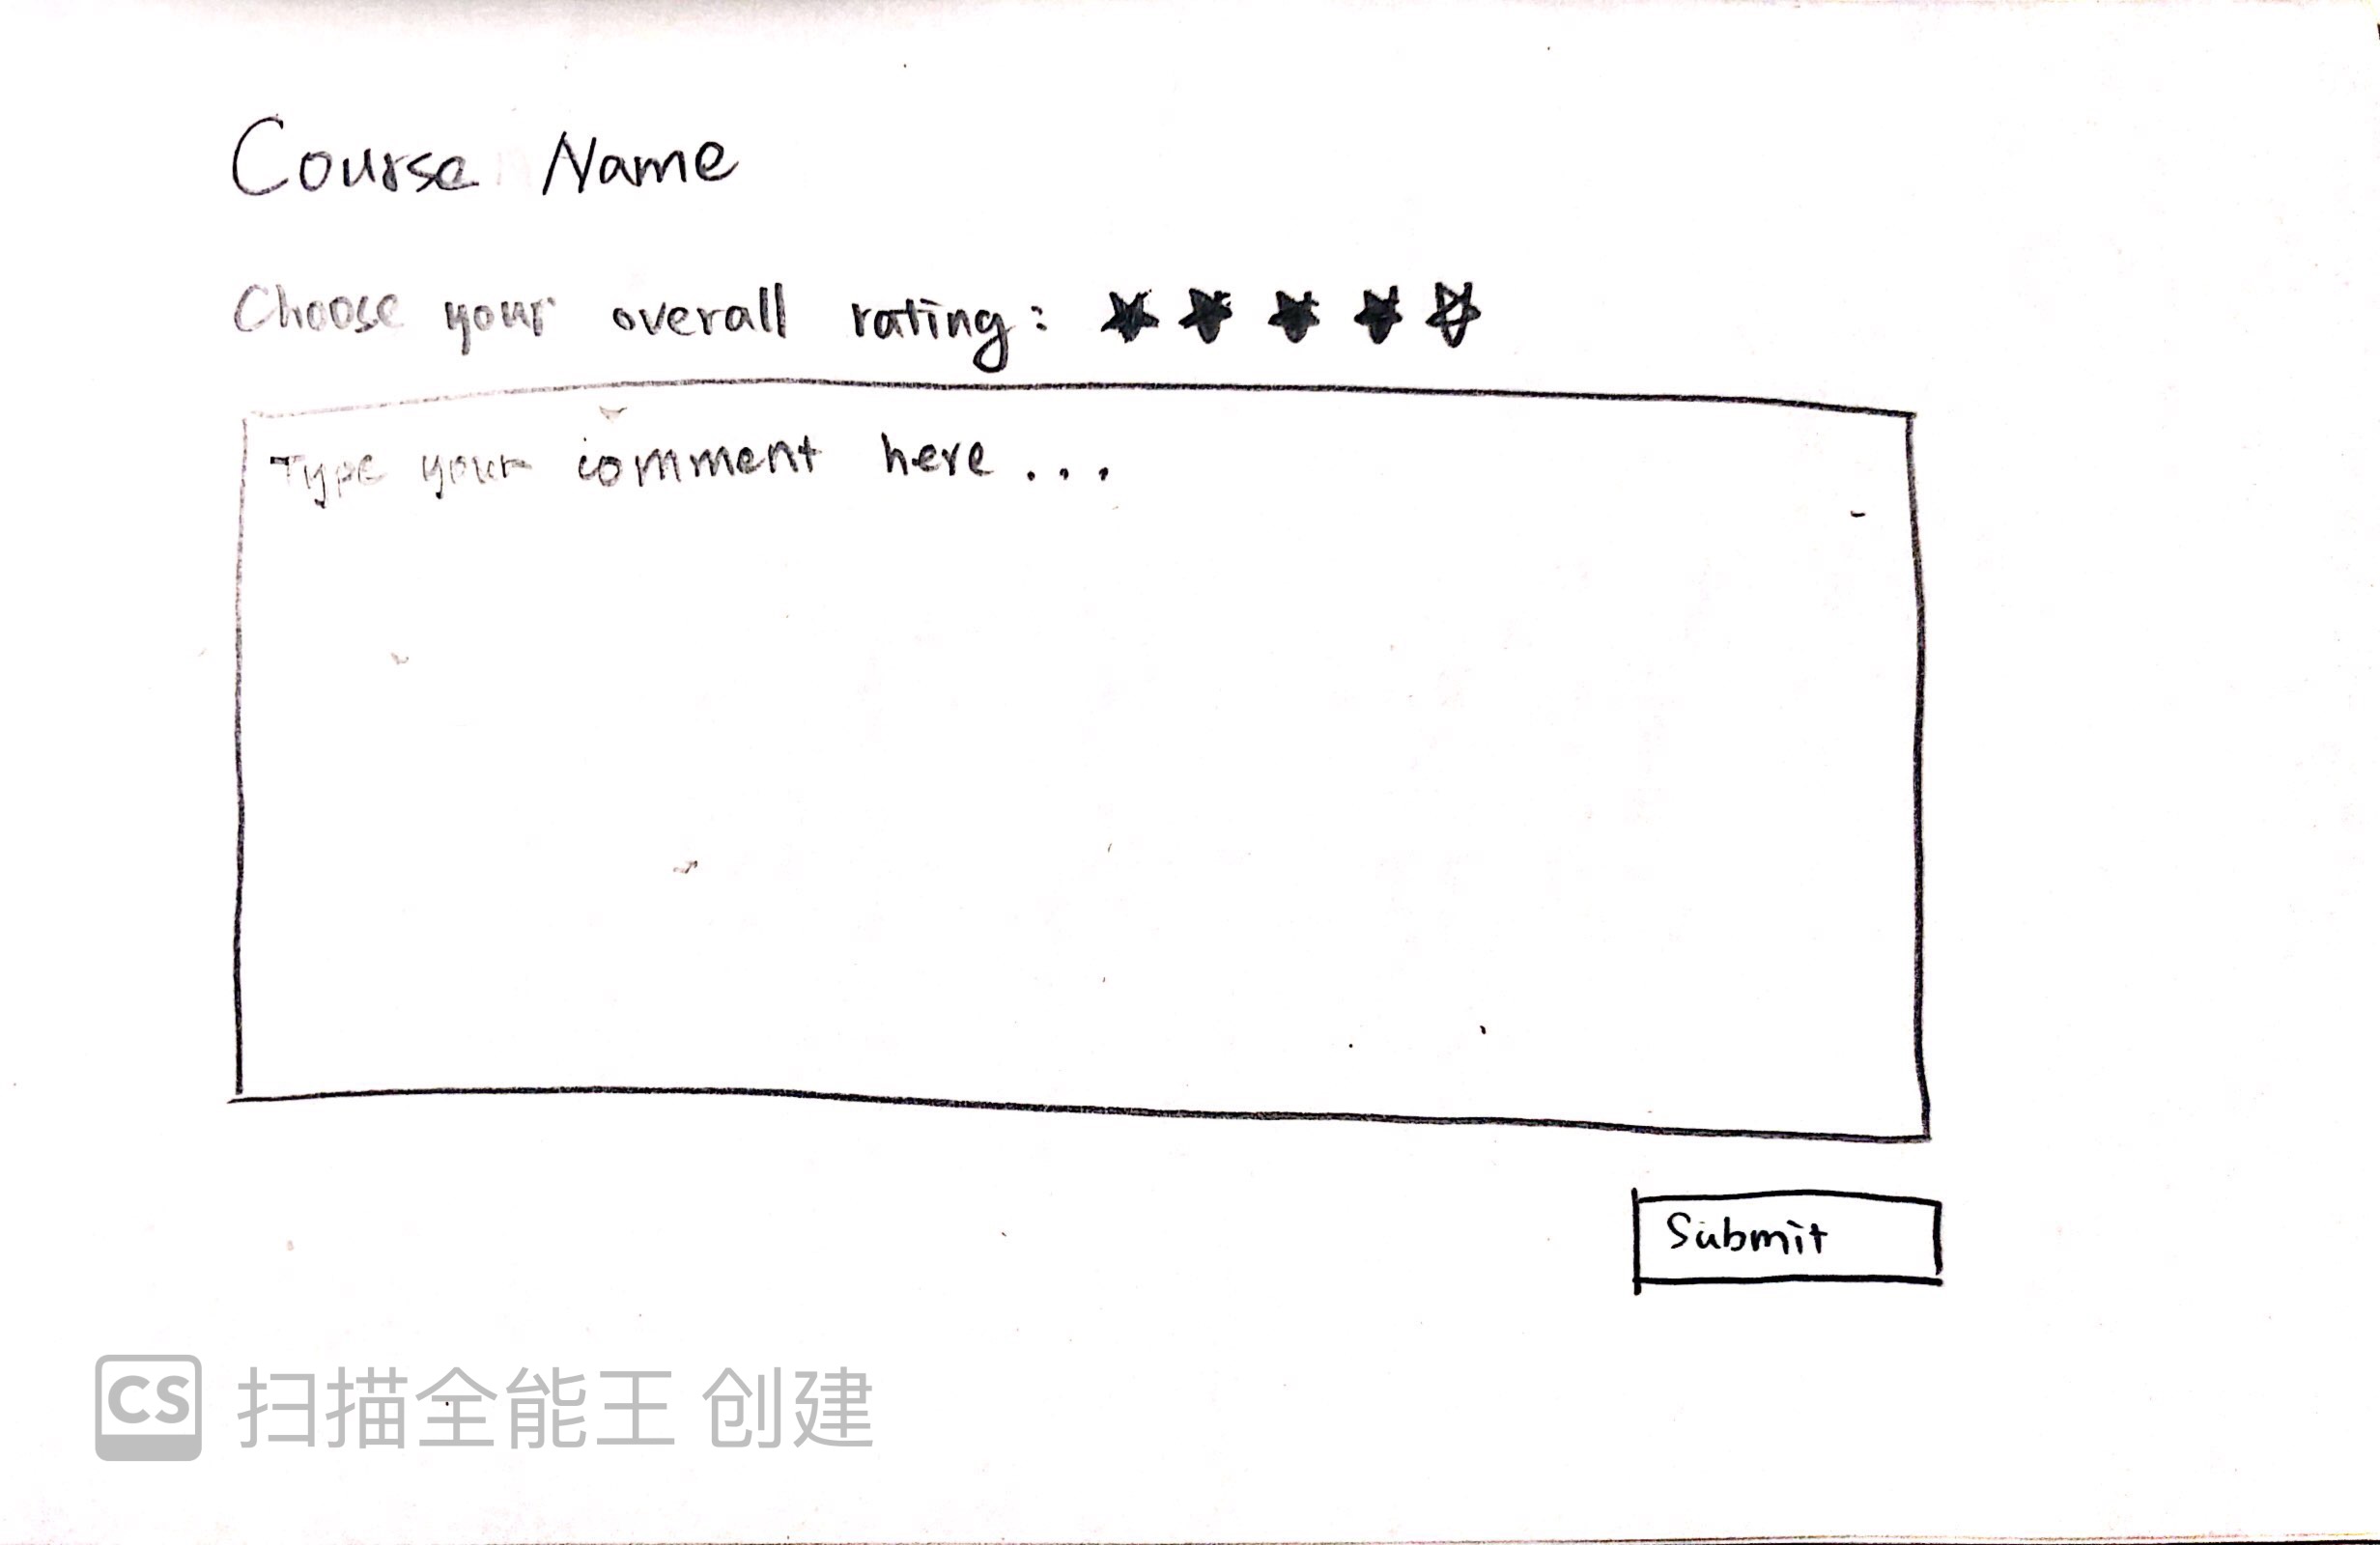 Course Name
Choose your overall rating: ★ ★ ★ ★ ☆
Type your comment here...
Submit
CS 扫描全能王 创建